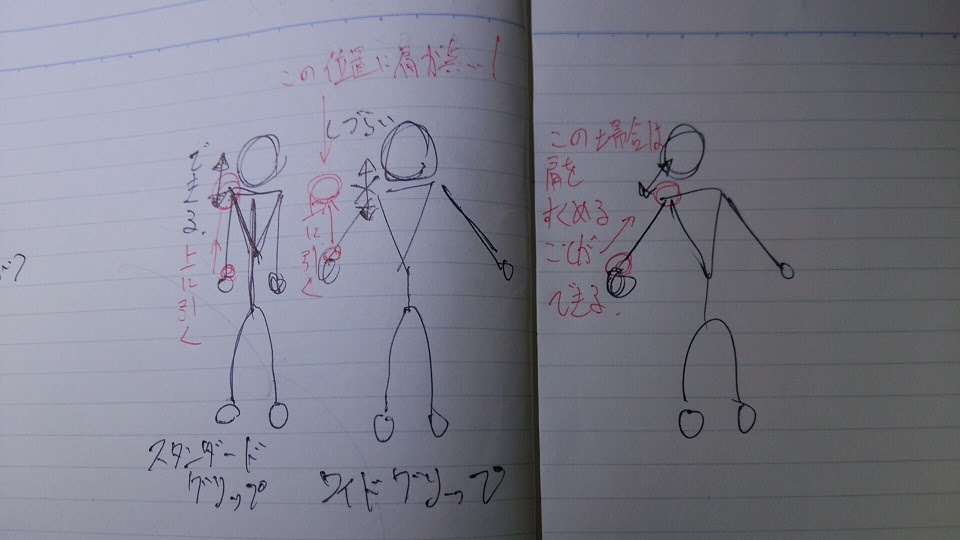 この位置に肩が無い…!
しづらい
できる.
上に引く
上に引く
この場合は
肩を
すくめる
ことが
できる.
スタンダード
グリップ
ワイドグリップ